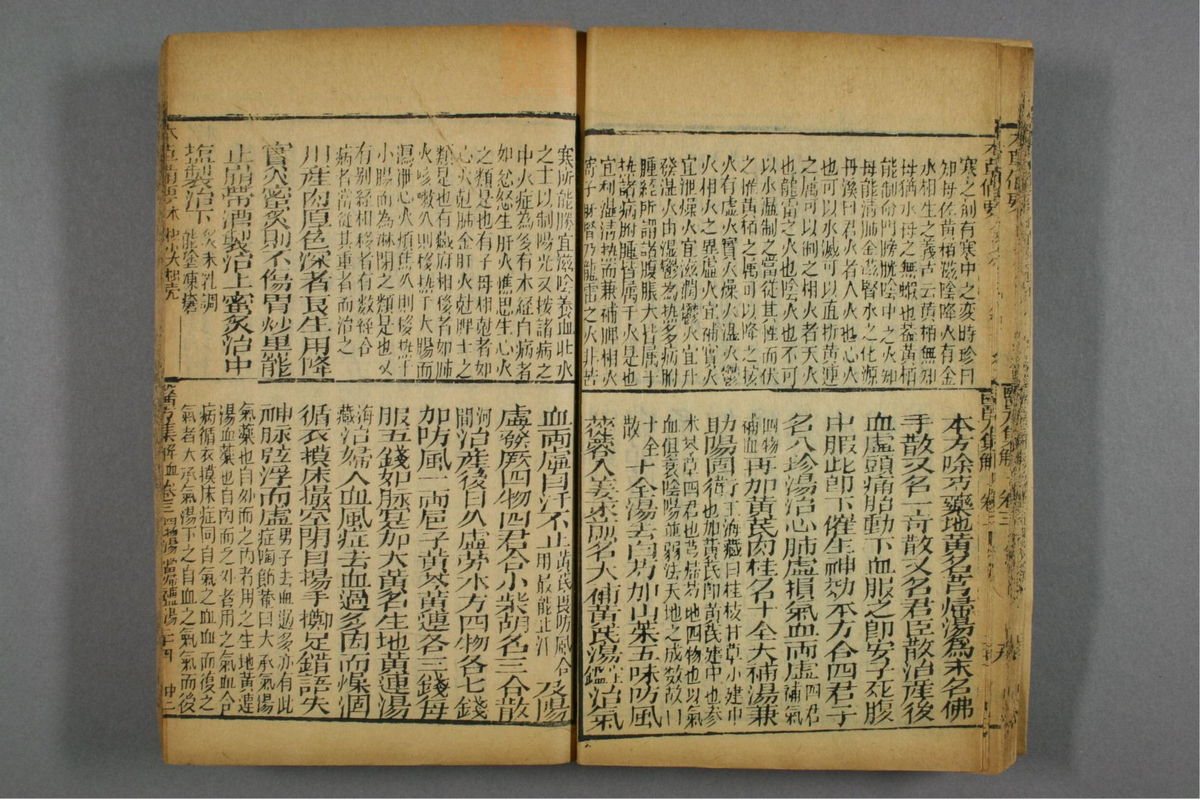 寒之劑有寒中之変時珍曰
知母佐黄柏滋陰降火有金
水相生之義古云黄柏無知
母猶水母之無蝦也葢黄柏
能制命門膀胱陰中之火知
母能清肺金滋腎水之化源
丹溪曰君火者人火也心火
也可以水滅可以直折黄連
之属可以制之相火者天火
也龍雷之火也陰火也不可
以水濕制之當從其性而伏
之惟黄柏之属可以降之按
火有虚火實火燥火濕火鬱
火相火之異虚火宜補實火
宜瀉燥火宜滋潤鬱火宜升
發湿火由湿鬱為热多病胕
腫經所謂諸腹脹大皆属于
热諸病胕腫皆属于火是也
宜利湿清热而兼補脾相火
寄于肝腎乃龍雷之火非苦
本方除芍藥地黄名芎歸湯為末名佛
手散又名一奇散又名君臣散治産後
血虚頭痛胎動下血服之即安子死腹
中服此即下催生神効本方合四君子
名八珍湯治心肺虚損氣血両虚四君補氣
四物補血再加黄芪肉桂名十全大補湯兼
力陽固衛王海藏曰桂枝甘草小建中
也加黄芪即黄芪建中也參
术苓草四君也芎歸芍地四物也以氣
血俱衰陰陽並弱法天地之成数故曰
十全散十全湯去白芍加山茱五味防風
蓯蓉入姜枣煎名大補黄芪湯鑑治氣
寒所能勝宜滋陰養血壮水
之主以制陽光又按諸病之
中火症為多有本經自病者
如忿怒生肝火僬思生心火
之類是也有子母相尅者如
心火尅肺金肝火尅脾土之
類是也有臓府相移者如肺
火咳嗽久則移热于大腸而
瀉泄心火煩焦久則移热于
小腸而為淋閉之類是也又
有别經相移者有数經合
病者當從其重者而治之
川産肉厚色深者良生用降
實火蜜炙則不傷胃炒黒能
止崩帶酒製治上蜜炙治中
塩製治下炙末乳調能塗凍瘡
本草備要 木
血両虚自汗不止黄芪畏防風合用最能止汗及陽
虚發厥四物四君合小柴胡名三合散
河間治産後日久虚劳本方四物各七錢
加防風一両巵子黄芩黄連各三錢每
服五錢如脉寔加大黄名生地黄連湯
海藏治婦人血風症去血過多因而燥涸
循衣摸床撮空閉目揚手擲足錯語失
神脉弦浮而虚男子去血過多亦有此症陶節菴曰大承氣湯
氣藥也自外而之内者用之生地黄連
湯血藥也自内而之外者用之氣血合
病循衣摸床症同自氣之血血而後之
氣者大承氣湯下之自血之氣氣而後
醫方集解 血 卷三 四物湯 當歸補血湯